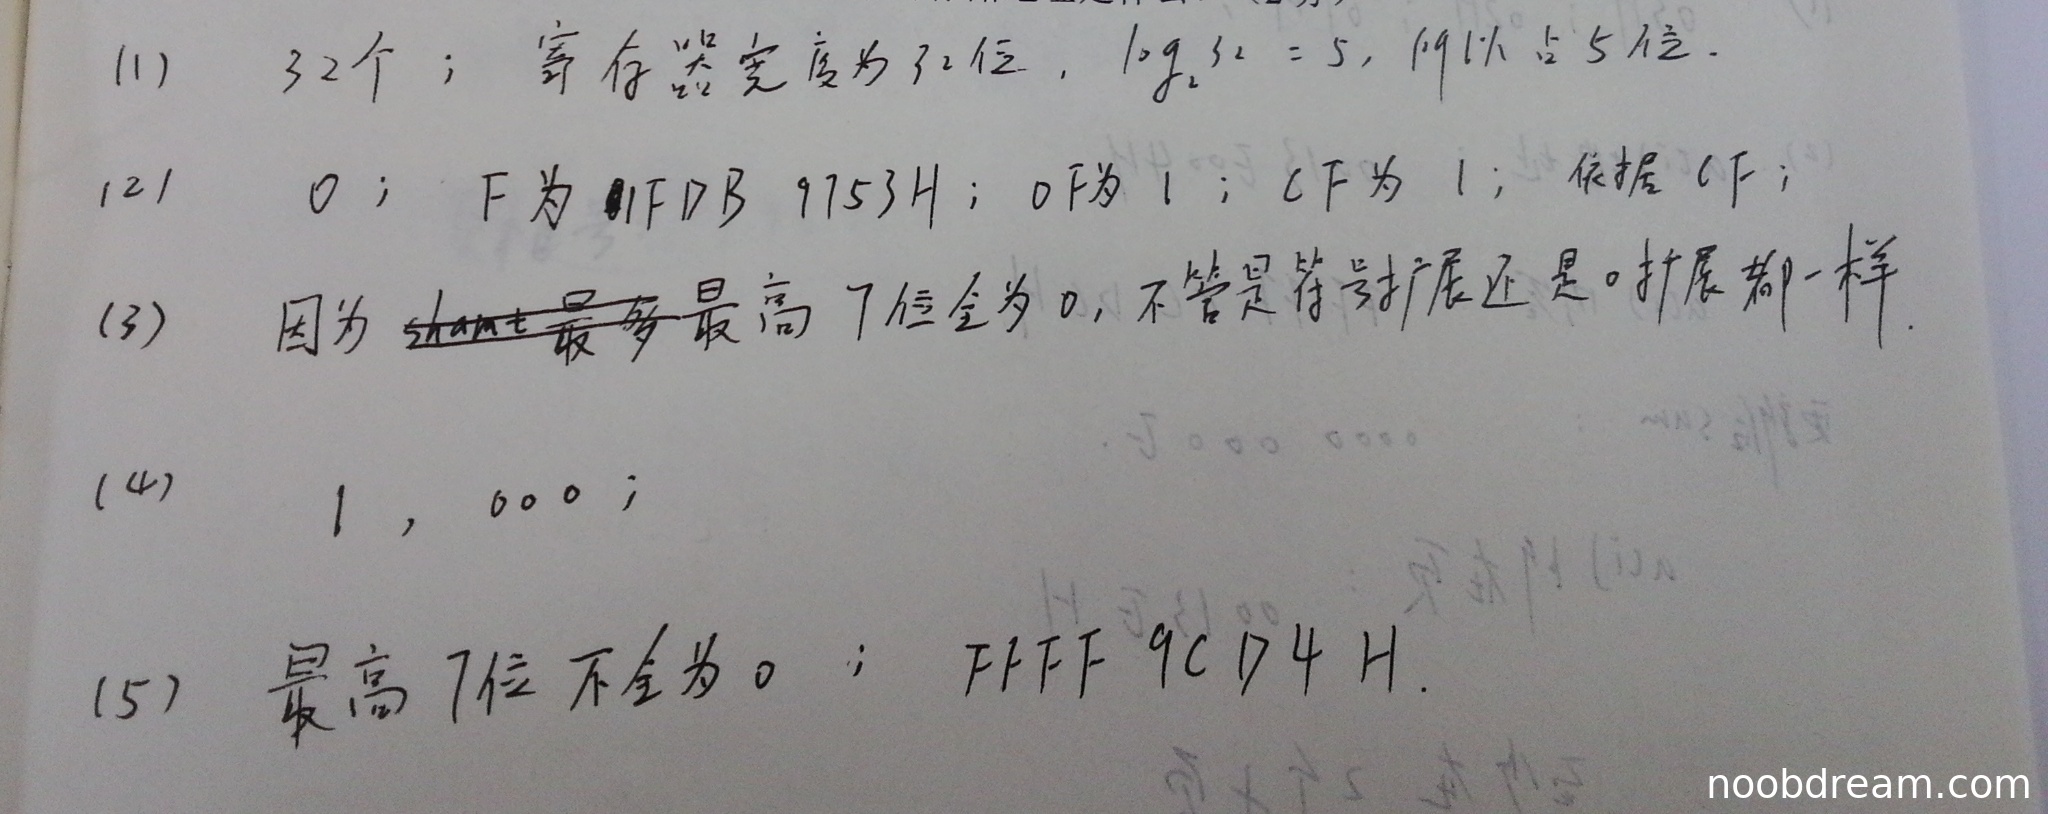 (1) 32个；寄存器宽度为32位，log₂32 = 5，所以占5位.
(2) 0；F为1FDB 9753H；OF为1；CF为1；依据CF；
(3) 因为最高7位全为0，不管是符号扩展还是0扩展都一样.
(4) 1，000；
(5) 最高7位不全为0；FFFF 9CD4H.
noobdream.com